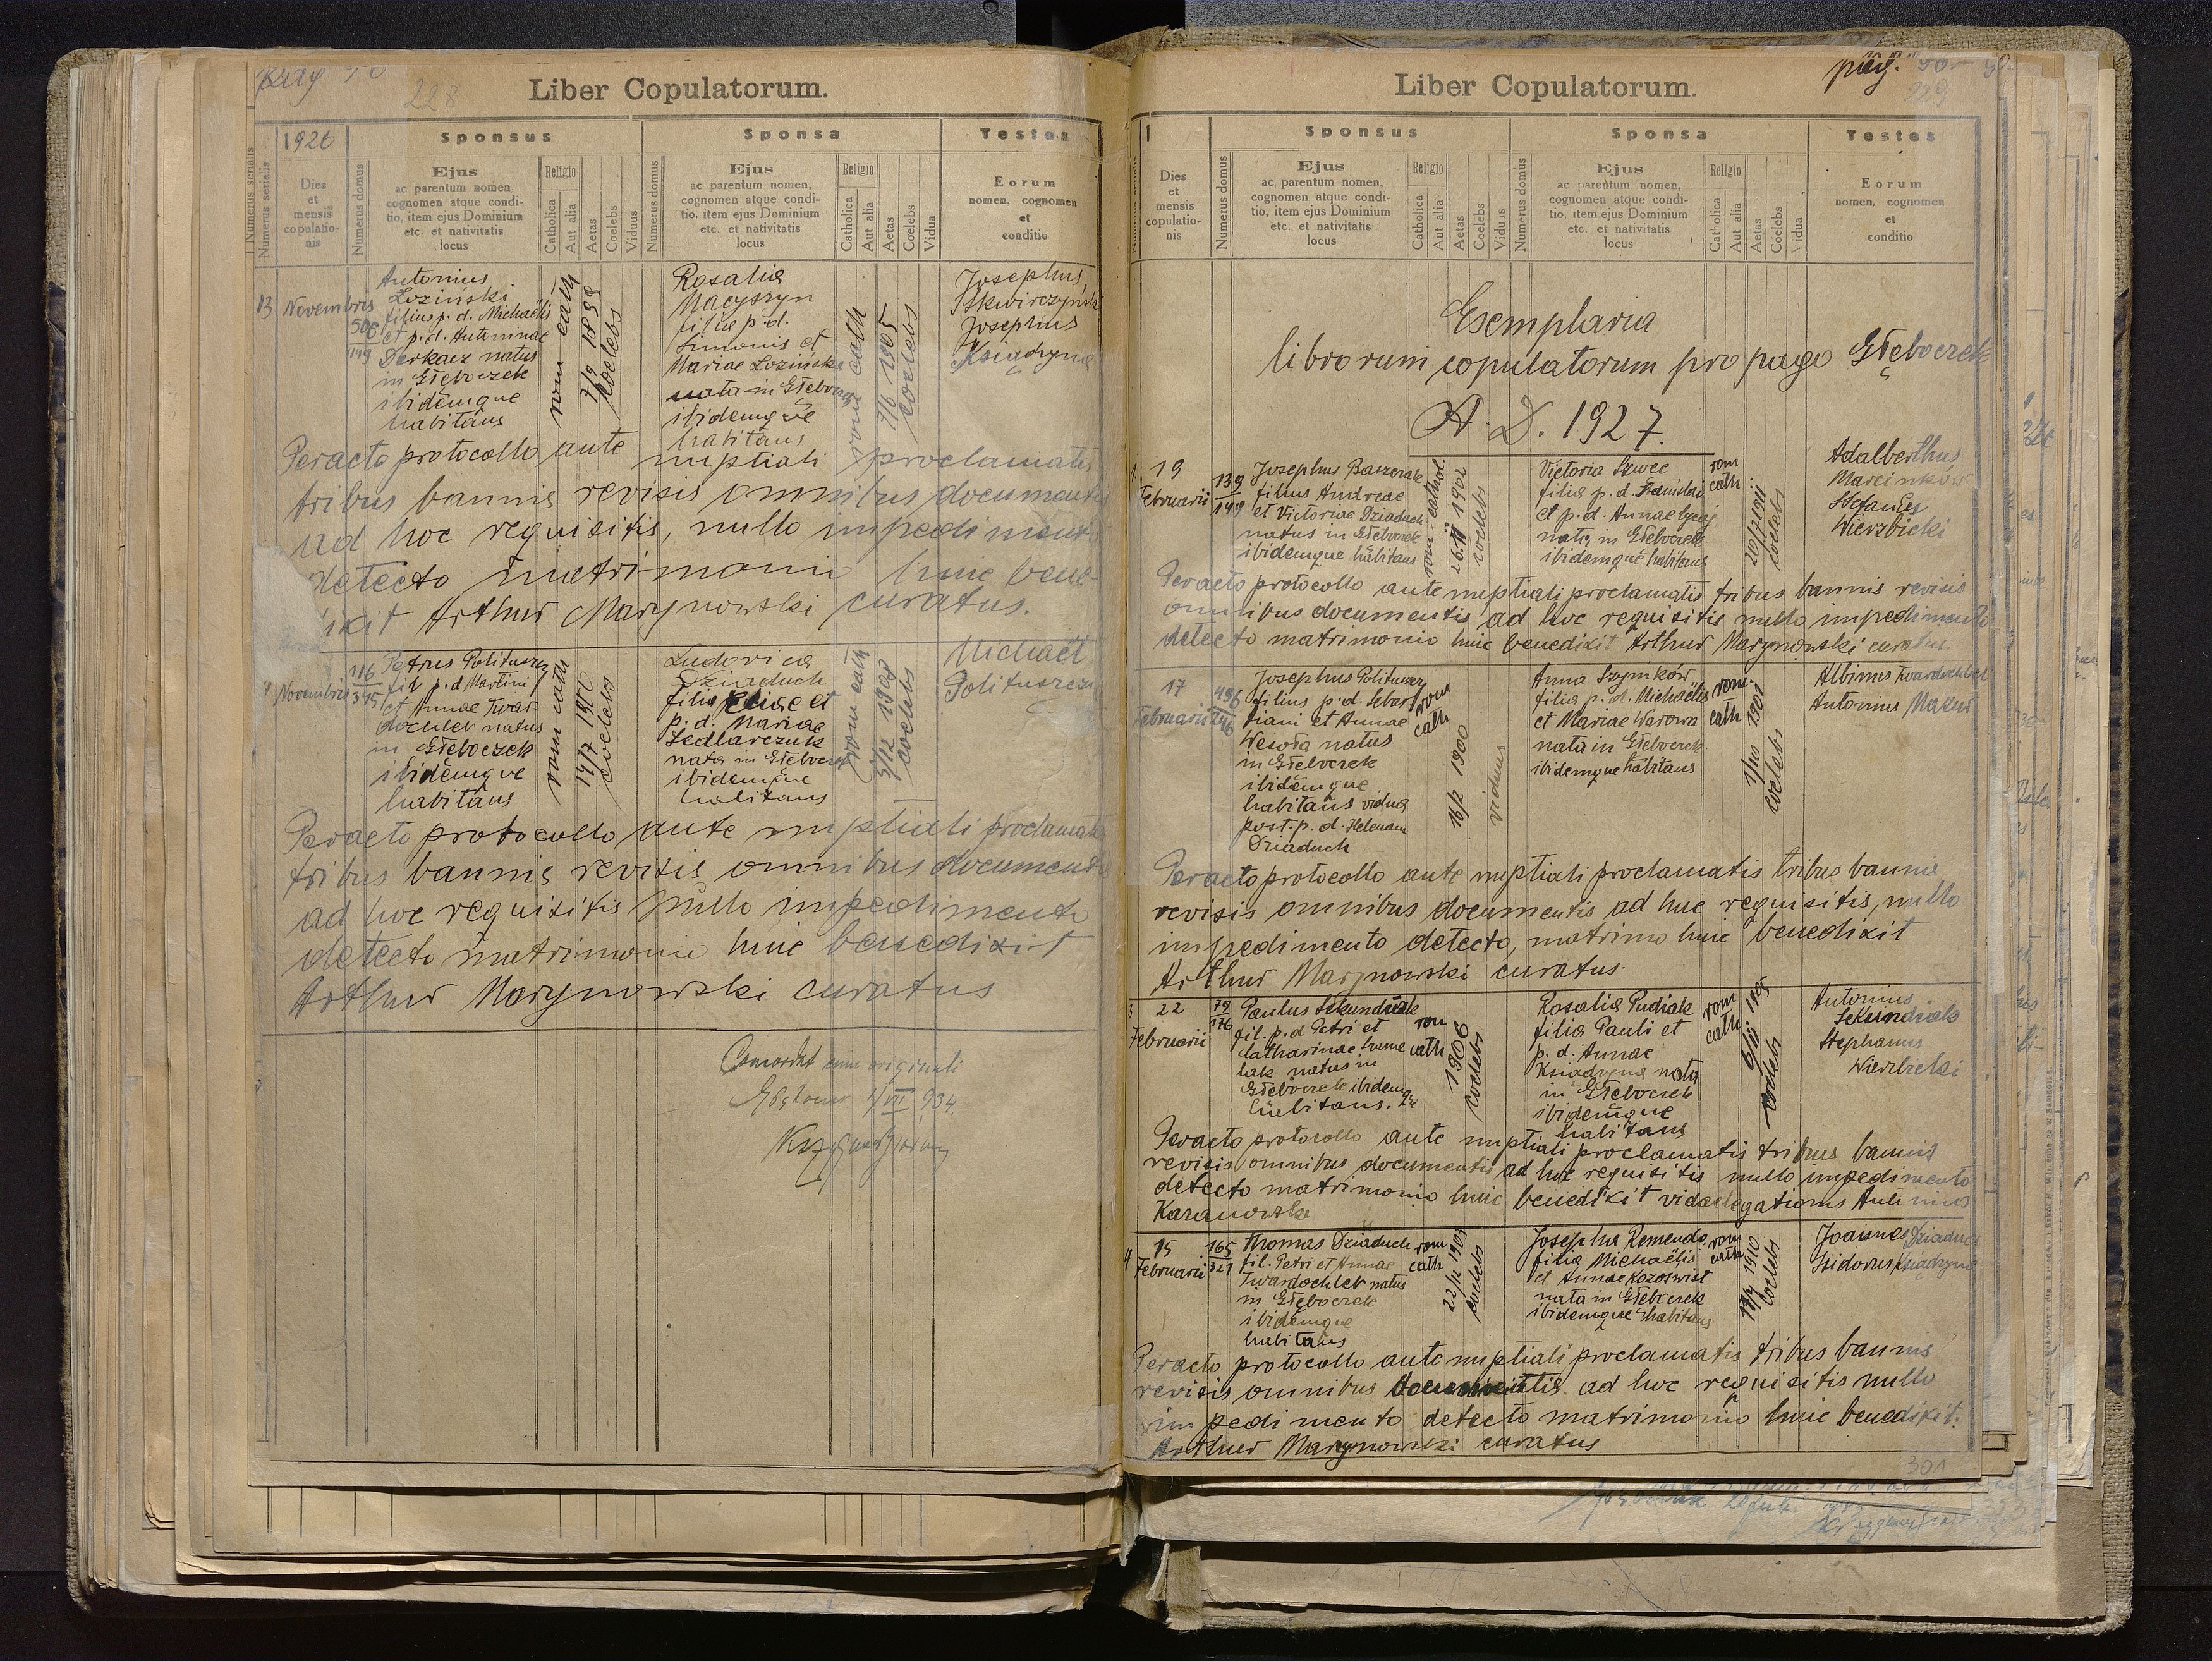 228
Liber Copulatorum.
1926
Sponsus
Sponsa
Testes
Numerus serialis
Dies
et
mensis
copulatio-
nis
Numerus domus
Ejus
ac parentum nomen,
cognomen atque condi-
tio, item ejus Dominium
etc. et nativitatis
locus
Religio
Catholica
Aut alia
Aetas
Coelebs
Viduus
Numerus domus
Ejus
ac parentum nomen,
cognomen atque condi-
tio, item ejus Dominium
etc. et nativitatis
locus
Religio
Catholica
Aut alia
Aetas
Coelebs
Vidua
Eorum
nomen, cognomen
et
conditio
13 Novembris
508
149
Antonius
Łoziński
filius p. d. Michaëlis
et p. d. Antoninae
Derkacz natus
in Głęboczek
ibidemque
habitans
rom cath
coelebs
Rosalia
Macyszyn
filia p. d.
Simonis et
Mariae Łozińska
nata in Głęboczek
ibidemque
habitans
rom cath
7/6 1905
coelebs
Josephus
Skwirczyński
Josephus
Ksiądzyna
Peracto protocollo ante nuptiali proclamatis
tribus bannis revisis omnibus documentis
ad hoc requisitis, nullo impedimento
detecto matrimonio huic bene-
dixit Arthur Marynowski curatus.
Novembris
116
345
Petrus Polituszcz
fil p. d Martini
et Annae Twar-
dochleb natus
in Głęboczek
ibidemque
habitans
rom cath
coelebs
Ludovica
Dziaduch
filia
p. d. Mariae
Sedlarczuk
nata in Głęboczek
ibidemque
habitans
rom cath
5/12 1904
coelebs
Michaël
Polituszcz
Peracto protocollo ante nuptiali proclamatis
tribus bannis revisis omnibus documentis
ad hoc requisitis nullo impedimento
detecto matrimonio huic benedixit
Arthur Marynowski curatus
Concordat cum originali
934
pag.
Liber Copulatorum.
1
Sponsus
Sponsa
Testes
Numerus serialis
Dies
et
mensis
copulatio-
nis
Numerus domus
Ejus
ac parentum nomen,
cognomen atque condi-
tio, item ejus Dominium
etc. et nativitatis
locus
Religio
Catholica
Aut alia
Aetas
Coelebs
Viduus
Numerus domus
Ejus
ac parentum nomen,
cognomen atque condi-
tio, item ejus Dominium
etc. et nativitatis
locus
Religio
Catholica
Aut alia
Aetas
Coelebs
Vidua
Eorum
nomen, cognomen
et
conditio
Exemplaria
librorum copulatorum pro pago Głęboczek
A. D. 1927.
19
Februarii
139
149
Josephus Baczerak
filius Andreae
et Victoriae Dziaduch
natus in Głęboczek
ibidemque habitans
rom-cathol.
coelebs
Victoria Szwec
filia p. d. Stanislai
et p. d. Annae
nata in Głęboczek
ibidemque habitans
rom
cath
20/7 1911
coelebs
Adalberthus
Marcinków
Stefanus
Wierzbicki
Peracto protocollo ante nuptiali proclamatis tribus bannis revisis
omnibus documentis ad hoc requisitis nullo impedimento
detecto matrimonio huic benedixit Arthur Marynowski curatus.
17
Februarii
496
246
Josephus Polituszcz
filius p. d. Sebas-
tiani et Annae
Wesoła natus
in Głęboczek
ibidemque
habitans vidua
post. p. d. Helenam
Dziaduch
rom
cath
16/2 1900
viduus
Anna Szymków
filia p. d. Michaëlis
et Mariae Warowa
nata in Głęboczek
ibidemque habitans
rom.
cath
1/10 1901
coelebs
Albinus Twardochleb
Antonius Makus
Peracto protocollo ante nuptiali proclamatis tribus bannis
revisis omnibus documentis ad huc requisitis, nullo
impedimento detecto, matrimo huic benedixit
Arthur Marynowski curatus.
3 22
Februarii
79
176
Paulus Sekundiak
fil. p. d Petri et
Catharinae Hume
lak natus in
Głęboczek ibidemq
habitans.
rom
cath
1906
coelebs
Rosalia Pudiak
filia Pauli et
p. d. Annae
Ksiądzyna nata
in Głęboczek
ibidemque
habitans
rom
cath
coelebs
Antonius
Sekundiak
Stephanus
Wierzbicki
Peracto protocollo ante nuptiali proclamatis tribus bannis
revisis omnibus documentis ad hoc requisitis nullo impedimento
detecto matrimonio huic benedixit vi delegationis Antonius
Karanowski
4 15
Februarii
165
321
Thomas Dziaduch
fil. Petri et Annae
Twardochleb natus
in Głęboczek
ibidemque
habitans
rom
cath
22/12 1903
coelebs
Josepha Remenda
filia Michaëlis
et Annae Kozoswist
nata in Głęboczek
ibidemque habitans
rom
cath
coelebs
Joannes Dziaduch
Isidorus Ksiądzyna
Peracto protocollo ante nuptiali proclamatis tribus bannis
revisis omnibus documentis ad hoc requisitis nullo
impedimento detecto matrimonio huic benedixit.
Arthur Marynowski curatus
301